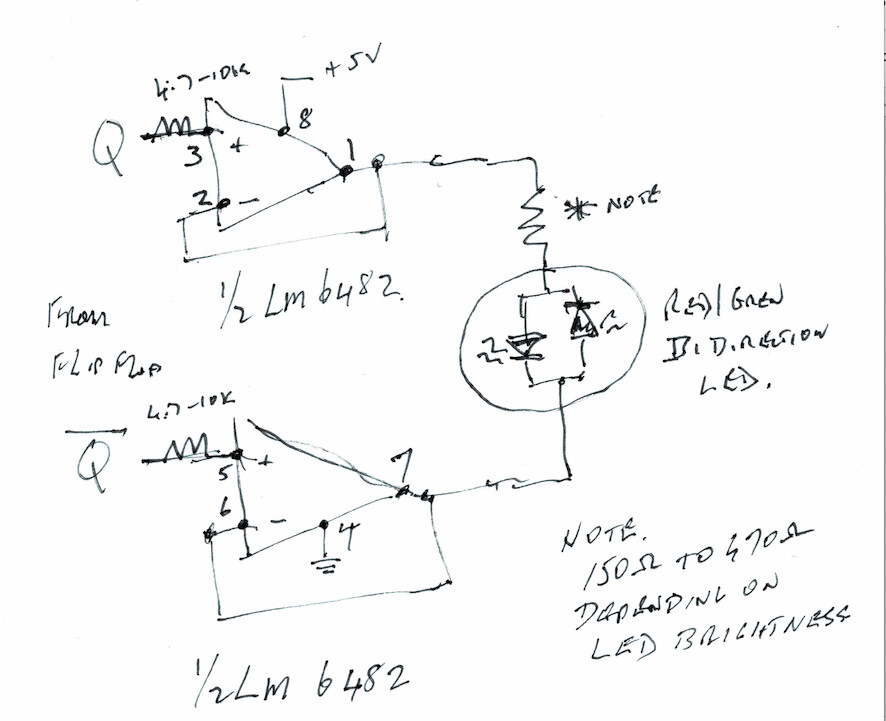 +5V
4.7-10K
8
Q
3
+
1
2
-
* NOTE
1/2 LM 6482.
FROM
FLIP FLOP
RED/GREEN
BIDIRECTION
LED.
4.7-10K
Q
5
+
7
6
-
4
NOTE.
150Ω TO 470Ω
DEPENDING ON
LED BRIGHTNESS
1/2 LM 6482